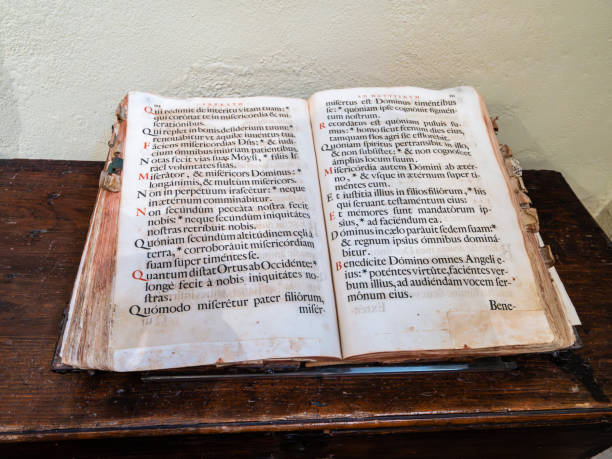 Qui redimit de interitu vitam tuam: *
qui corónat te in misericórdia & mi-
serationibus.
Qui replet in bonis desidérium tuum: *
renovabitur vt áquilæ iuventus tua.
Fáciens misericórdias Dñs: * & iudi-
cium ómnibus iniúriam patiéntibus.
Notas fecit vias suas Moÿsi, * filiis Is-
rael voluntátes suas.
Miserátor, & miséricors Dóminus: *
longánimis, & multùm miséricors.
Non in perpétuum irascétur: * neque
in ætérnum comminábitur.
Non secúndum peccáta nostra fecit
nobis: * neque secúndum iniquitátes
nostras retríbuit nobis.
Quóniam secúndum altitúdinem cæli à
terra, * corroborávit misericórdiam
suam super timéntes se.
Quantum distat Ortus ab Occidénte: *
longè fecit à nobis iniquitátes no-
stras.
Quómodo miserétur pater filiórum,
misér-
AD
misértus est Dóminus timéntibus
se: * quóniam ipse cognóvit figmén-
tum nostrum.
Recordátus est quóniam pulvis su-
mus: * homo sicut fœnum dies eius,
tamquam flos agri sic efflorébit.
Quóniam spíritus pertransíbit in illo,
& non subsístet: * & non cognóscet
ámplius locum suum.
Misericórdia autem Dómini ab ætér-
no, * & vsque in ætérnum super ti-
méntes eum.
Et iustítia illíus in fílios filiórum, * his
qui servant testaméntum eius:
Et mémores sunt mandatórum ip-
síus, * ad faciéndum ea.
Dóminus in cælo parávit sedem suam: *
& regnum ipsíus ómnibus dominá-
bitur.
Benedícite Dómino omnes Angeli e-
ius: * poténtes virtúte, faciéntes ver-
bum illíus, ad audiéndam vocem ser-
mónum eius.
Bene-